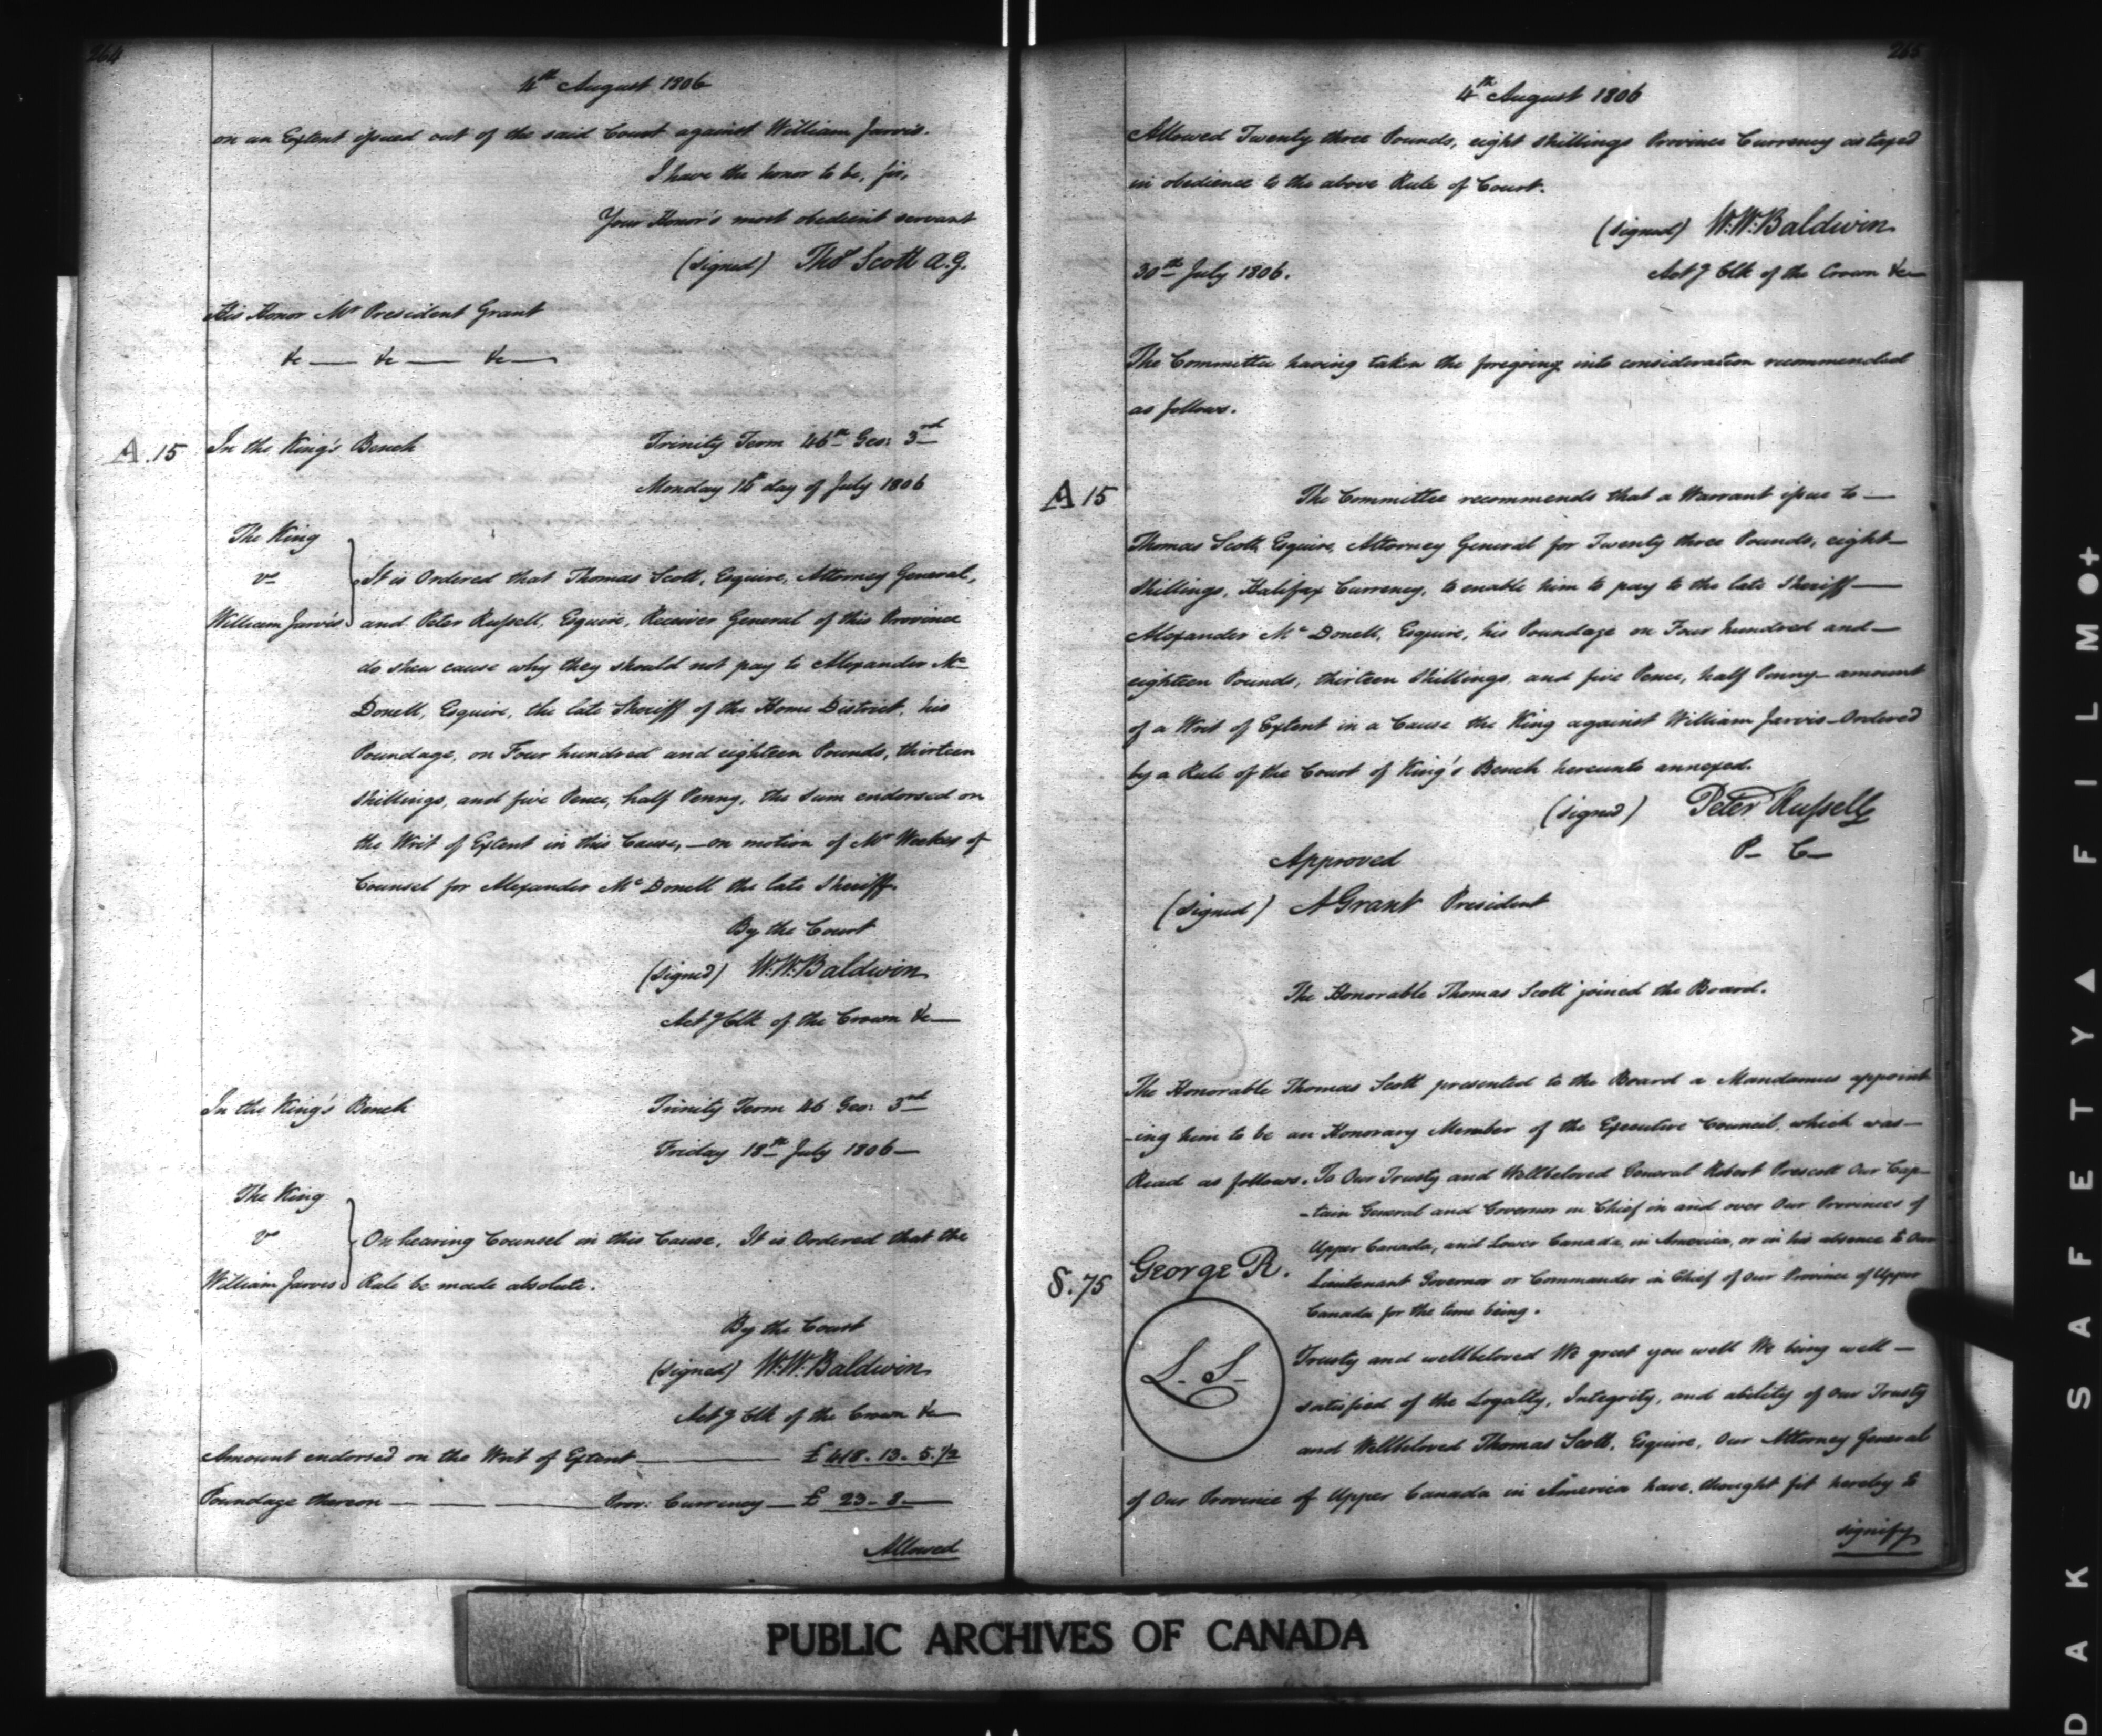 264
4th August 1806
on an Extent issued out of the said Court against William Jarvis.
I have the honor to be, sir,
Your Honor's most obedient servant
(signed) Thos Scott A.G.
His Honor Mr President Grant
&c — &c — &c —
A.15 In the King's Bench Trinity Term 46th Geo: 3rd
Monday 14 day of July 1806
The King
vs
It is Ordered that Thomas Scott, Esquire, Attorney General,
William Jarvis and Peter Russell, Esquire, Receiver General of this Province
do shew cause why they should not pay to Alexander Mc
Donell, Esquire, the late Sheriff of the Home District, his
Poundage, on Four hundred and eighteen Pounds, thirteen
shillings, and five Pence, half Penny, the sum endorsed on
the Writ of Extent in this Cause, — on motion of Mr Weekes of
Counsel for Alexander Mc Donell the late Sheriff.
By the Court
(signed) W.W. Baldwin
Actg Clk of the Crown &c —
In the King's Bench Trinity Term 46 Geo: 3rd
Friday 18th July 1806 —
The King
vs
On hearing Counsel in this Cause, It is Ordered that the
William Jarvis Rule be made absolute.
By the Court
(signed) W.W. Baldwin
Actg Clk of the Crown &c
Amount endorsed on the Writ of Extent — £ 418. 13. 5. 1/2
Poundage thereon — Prov: Currency — £ 23 - 8 —
Allowed
265
4th August 1806
Allowed Twenty three Pounds, eight shillings Province Currency as taxed
in obedience to the above Rule of Court.
(signed) W.W. Baldwin
30th July 1806. Actg Clk of the Crown &c
The Committee having taken the foregoing into consideration recommended
as follows.
A 15 The Committee recommends that a Warrant issue to —
Thomas Scott, Esquire, Attorney General for Twenty three Pounds, eight —
shillings, Halifax Currency, to enable him to pay to the late Sheriff —
Alexander Mc Donell, Esquire, his Poundage on Four hundred and —
eighteen Pounds, thirteen Shillings, and five Pence, half Penny — amount
of a Writ of Extent in a Cause the King against William Jarvis — Ordered
by a Rule of the Court of King's Bench hereunto annexed.
(signed) Peter Russell
P — C —
Approved
(signed) A Grant President
The Honorable Thomas Scott joined the Board.
The Honorable Thomas Scott presented to the Board a Mandamus appoint
-ing him to be an Honorary Member of the Executive Council, which was —
Read as follows. To Our Trusty and Wellbeloved General Robert Prescott Our Cap-
-tain General and Governor in Chief in and over Our Provinces of
Upper Canada, and Lower Canada, in America, or in his absence to Our
S.75 George R. Lieutenant Governor or Commander in Chief of Our Province of Upper
Canada for the time being.
L. S. Trusty and wellbeloved We greet you well We being well —
satisfied of the Loyalty, Integrity, and ability of Our Trusty
and Wellbeloved Thomas Scott, Esquire, Our Attorney General
of Our Province of Upper Canada in America have thought fit hereby to
signify
PUBLIC ARCHIVES OF CANADA
DAK SAFETY ▲ FILM ●+